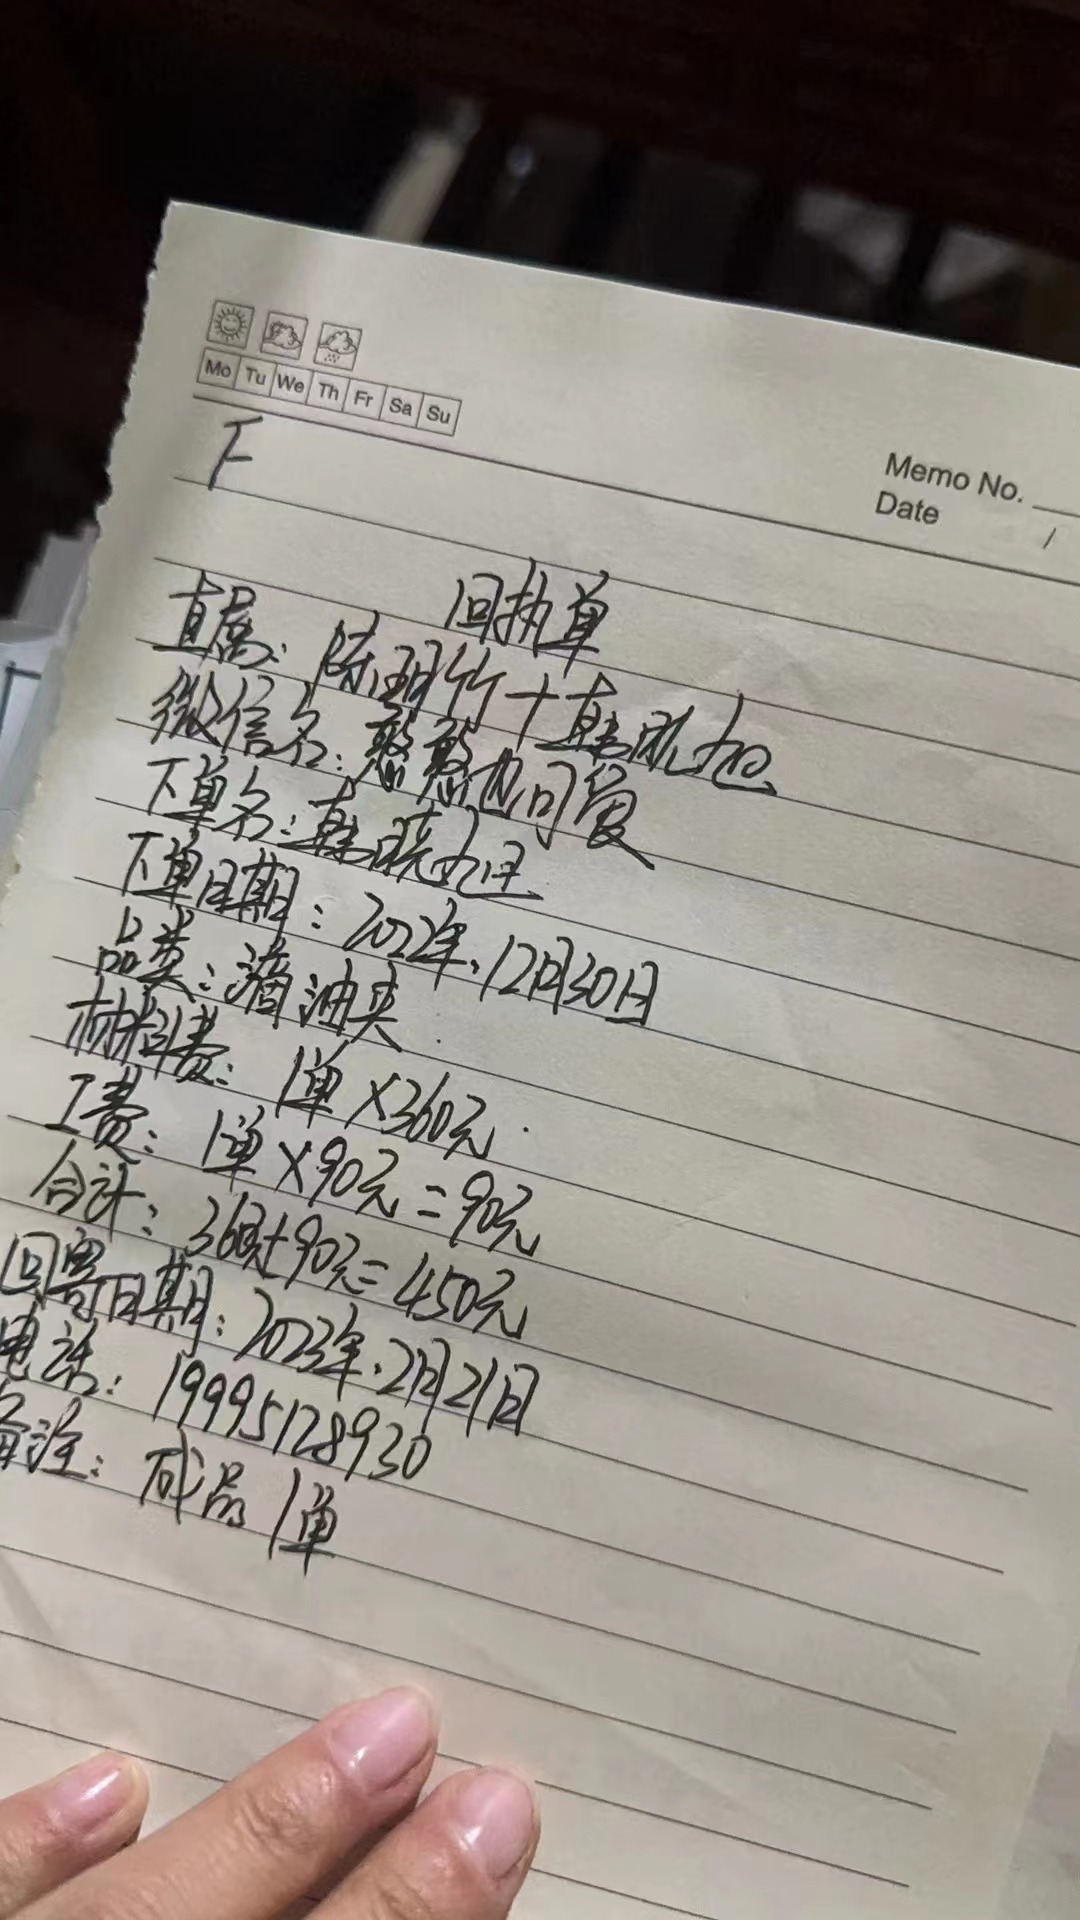 Mo Tu We Th Fr Sa Su
Memo No.
Date /
下
回执单
直属：陈珊竹+韩帆旭
微信名：憨憨也可爱
下单名：韩晓旭
下单日期：2022年.12月30日
品类：滴油夹
材料费：1单×360元.
工费：1单×90元=90元
合计：360元+90元=450元
回寄日期：2023年.2月21日
电话：19995128930
备注：成品1单